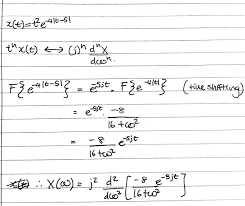 x(t)=t²e^{-4|t-5|}
tⁿ x(t) ⟷ (j)ⁿ dⁿX/dωⁿ
F{e^{-4|t-5|}} = e^{-5jt} · F{e^{-4|t|}} (time shifting)
= e^{-5jt} · -8/(16+ω²)
= -8/(16+ω²) e^{-5jt}
∴ X(ω) = j² d²/dω² [-8/(16+ω²) e^{-5jt}]